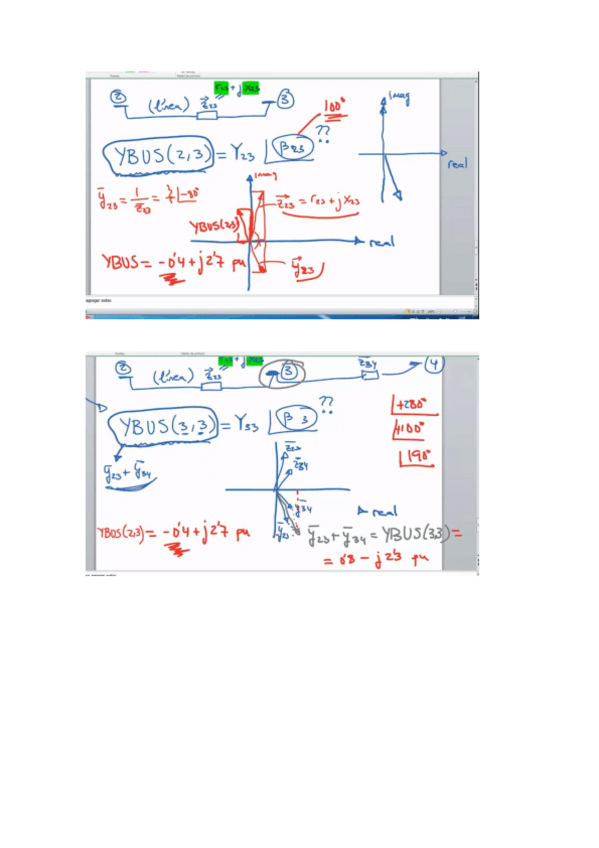 r23 + j x23
② (línea) Z̄23 ③
100°
imag
??
YBUS(2,3) = Y23 |β23
real
imag
ȳ23 = 1/Z̄23 = |-80°
Z̄23 = r23 + j x23
YBUS(2,3)
real
YBUS = -0'4 + j2'7 pu
ȳ23
agregar notas
r23 + j x23
② (línea) Z̄23 ③ Z̄34 ④
??
YBUS(3,3) = Y33 |β 3
|+280°
|+100°
|190°
Z̄23
Z̄34
ȳ23 + ȳ34
ȳ34
real
ȳ23
YBUS(2,3) = -0'4 + j2'7 pu
ȳ23 + ȳ34 = YBUS(3,3) =
= 0'8 - j2'3 pu